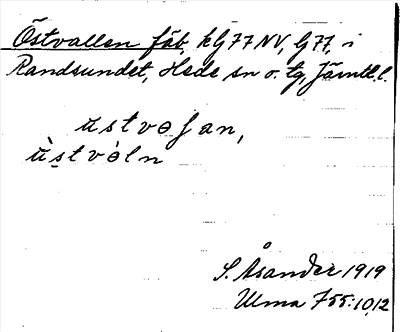 Östvallen fäb. kG77NV, G77, i
Randsundet, Hede sn o. tg, Jämtl. l.
üstvoʃan,
ùstvòln
S. Åsander 1919
Ulma 755:10,12